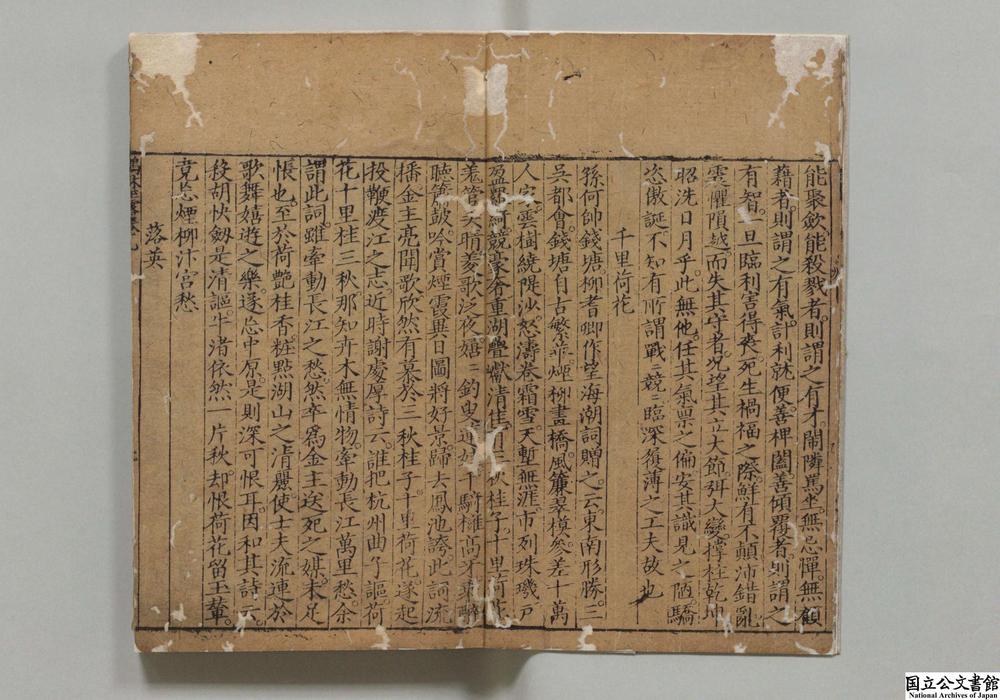 能聚斂能殺戮者則謂之有才閙隣罵坐無忌憚無顧
藉者則謂之有氣計利就便善捭闔善傾覆者則謂之
有智一旦臨利害得喪死生禍福之際鮮有不顛沛錯亂
震懼隕越而失其守者况望其立大節弭大變撑柱乾坤
昭洗日月乎此無他任其氣禀之偏安其識見之陋驕
恣傲誕不知有所謂戰〻競〻臨深履薄之工夫故也
千里荷花
孫何帥錢塘柳耆卿作望海潮詞贈之云東南形勝三
吳都會錢塘自古繁華煙柳畫橋風簾翠模參差十萬
人家雲樹繞隄沙怒濤卷霜雪天塹無涯市列珠璣戶
盈羅綺競豪奢重湖疊巘清佳有三秋桂子十里荷花
羗管弄晴菱歌泛夜嬉〻釣叟蓮娃千騎擁高牙乘醉
聽簫鼓吟賞煙霞異日圖將好景歸去鳳池誇此詞流
播金主亮聞歌欣然有慕於三秋桂子十里荷花遂起
投鞭渡江之志近時謝處厚詩云誰把杭州曲子謳荷
花十里桂三秋那知卉木無情物牽動長江萬里愁余
謂此詞雖牽動長江之愁然卒爲金主送死之媒未足
恨也至於荷艷桂香粧點湖山之清麗使士夫流連於
歌舞嬉遊之樂遂忘中原是則深可恨耳因和其詩云
殺胡快劒是清謳牛渚依然一片秋却恨荷花留玉輦
竟忘煙柳汴宮愁
落英
国立公文書館
National Archives of Japan